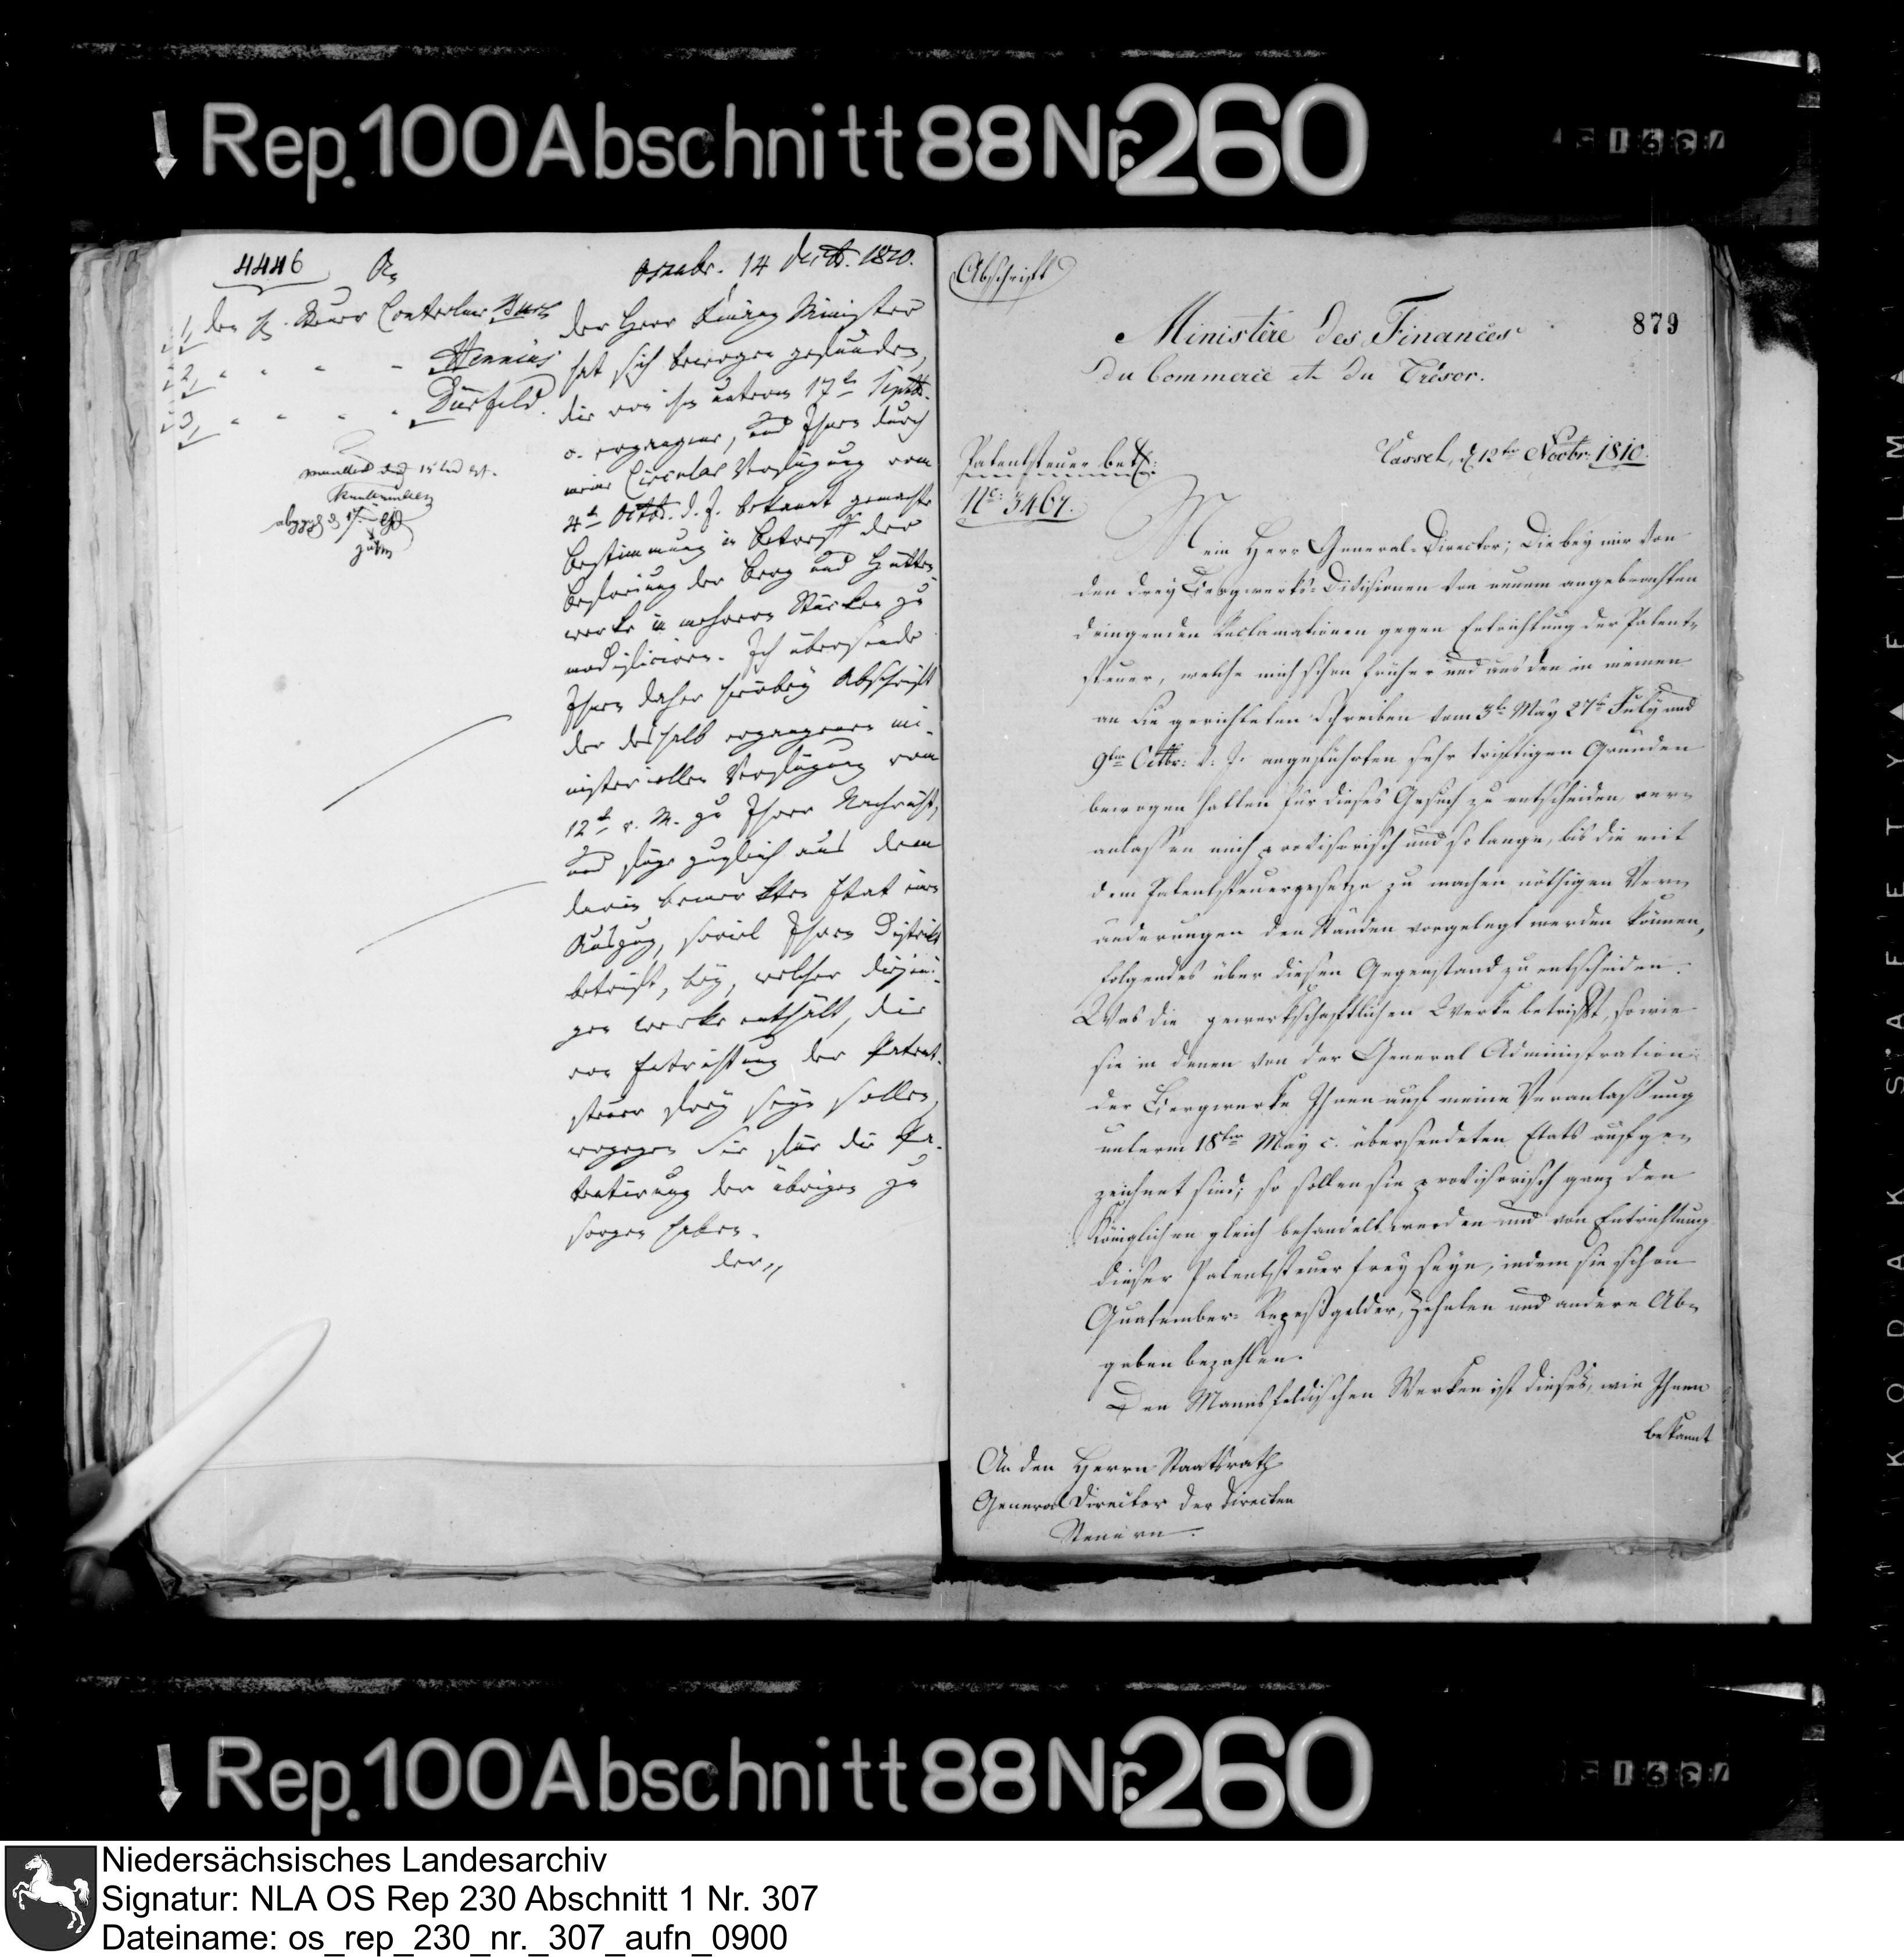 Rep. 100 Abschnitt 88 Nr. 260
4446
An
1, den H. Steuer Controleur
2, " " " " Hennius
3, " " " " Dürfeld.
Osnabr. 14 Decbr. 1810.
der Herr Finanz Minister
hat sich bewogen gefunden,
die von ihm unterm 17t Septbr.
c. ergangene, und Ihnen durch
meine Circular Verfügung vom
4t Octbr. d. J. bekannt gemachte
Bestimmung in Betreff der
Besteuerung der Berg und Hütten-
werke in mehrern Stücken zu
modificiren. Ich übersende
Ihnen daher hierbey Abschrift
der deshalb ergangenen mi-
nisteriellen Verfügung vom
12t v. M. zu Ihrer Nachricht,
und füge zugleich aus dem
darin bemerkten Etat einen
Auszug, soviel Ihren District
betrift, bey, welcher diejeni-
gen Werke enthält, die
von Entrichtung der Patent-
steuer frey seyn sollen,
wogegen Sie für die Pa-
tentirung der übrigen zu
sorgen haben.
der
Abschrift
879
Ministère des Finances
du Commerce et du Trésor.
Cassel, d 12ten Novbr. 1810.
Patentsteuer betr.
No: 3467.
Mein Herr General-Director; Die bey mir von
den drey Bergwerks-Divisionen von neuem angebrachten
dringenden Reclamationen gegen Entrichtung der Patent-
steuer, welche mich schon früher und aus den in meinen
an Sie gerichteten Schreiben vom 3t May 27t July und
9ten Octbr: d: J. angeführten sehr triftigen Gründen
bewogen hatten für dieses Gesuch zu entscheiden, ver-
anlassen mich provisorisch und so lange, bis die mit
dem Patentsteuergesetze zu machen nöthigen Ver-
änderungen den Ständen vorgelegt werden können,
folgendes über diesen Gegenstand zu entscheiden.
Was die gewerkschaftlichen Werke betrifft, so wie
sie in denen von der General Administration
der Bergwerke Ihnen auf meine Veranlaßung
unterm 18ten May c. übersendeten Etats aufge-
zeichnet sind; so sollen sie provisorisch ganz den
Königlichen gleich behandelt werden und von Entrichtung
dieser Patentsteuer frey seyn, indem sie schon
Quatember- Rezeßgelder, Zehnten und andere Ab-
gaben bezahlen.
Den Mannsfeldischen Werken ist dieses, wie Ihnen
bekannt
An den Herrn Staatsrath
General Director der directen
Steuern.
Rep. 100 Abschnitt 88 Nr. 260
KODAK SAFETY FILM
Niedersächsisches Landesarchiv
Signatur: NLA OS Rep 230 Abschnitt 1 Nr. 307
Dateiname: os_rep_230_nr._307_aufn_0900